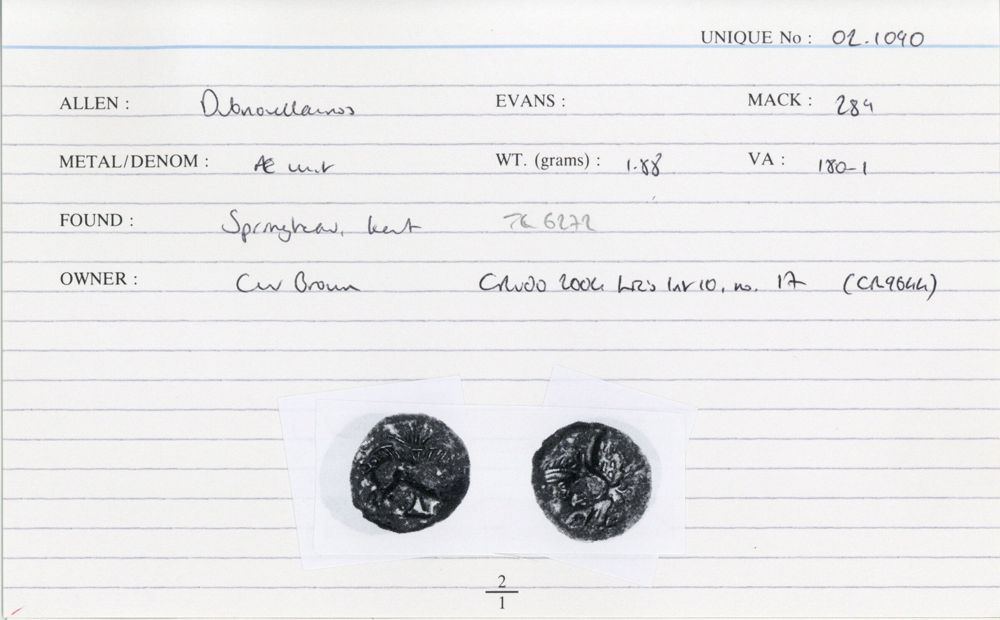 UNIQUE No : 02.1090
ALLEN : Dubnovellaunos EVANS : MACK : 289
METAL/DENOM : Æ unit WT. (grams) : 1.88 VA : 180-1
FOUND : Springhead, Kent TQ 6272
OWNER : CW Brown 2004 no. 17
2
1